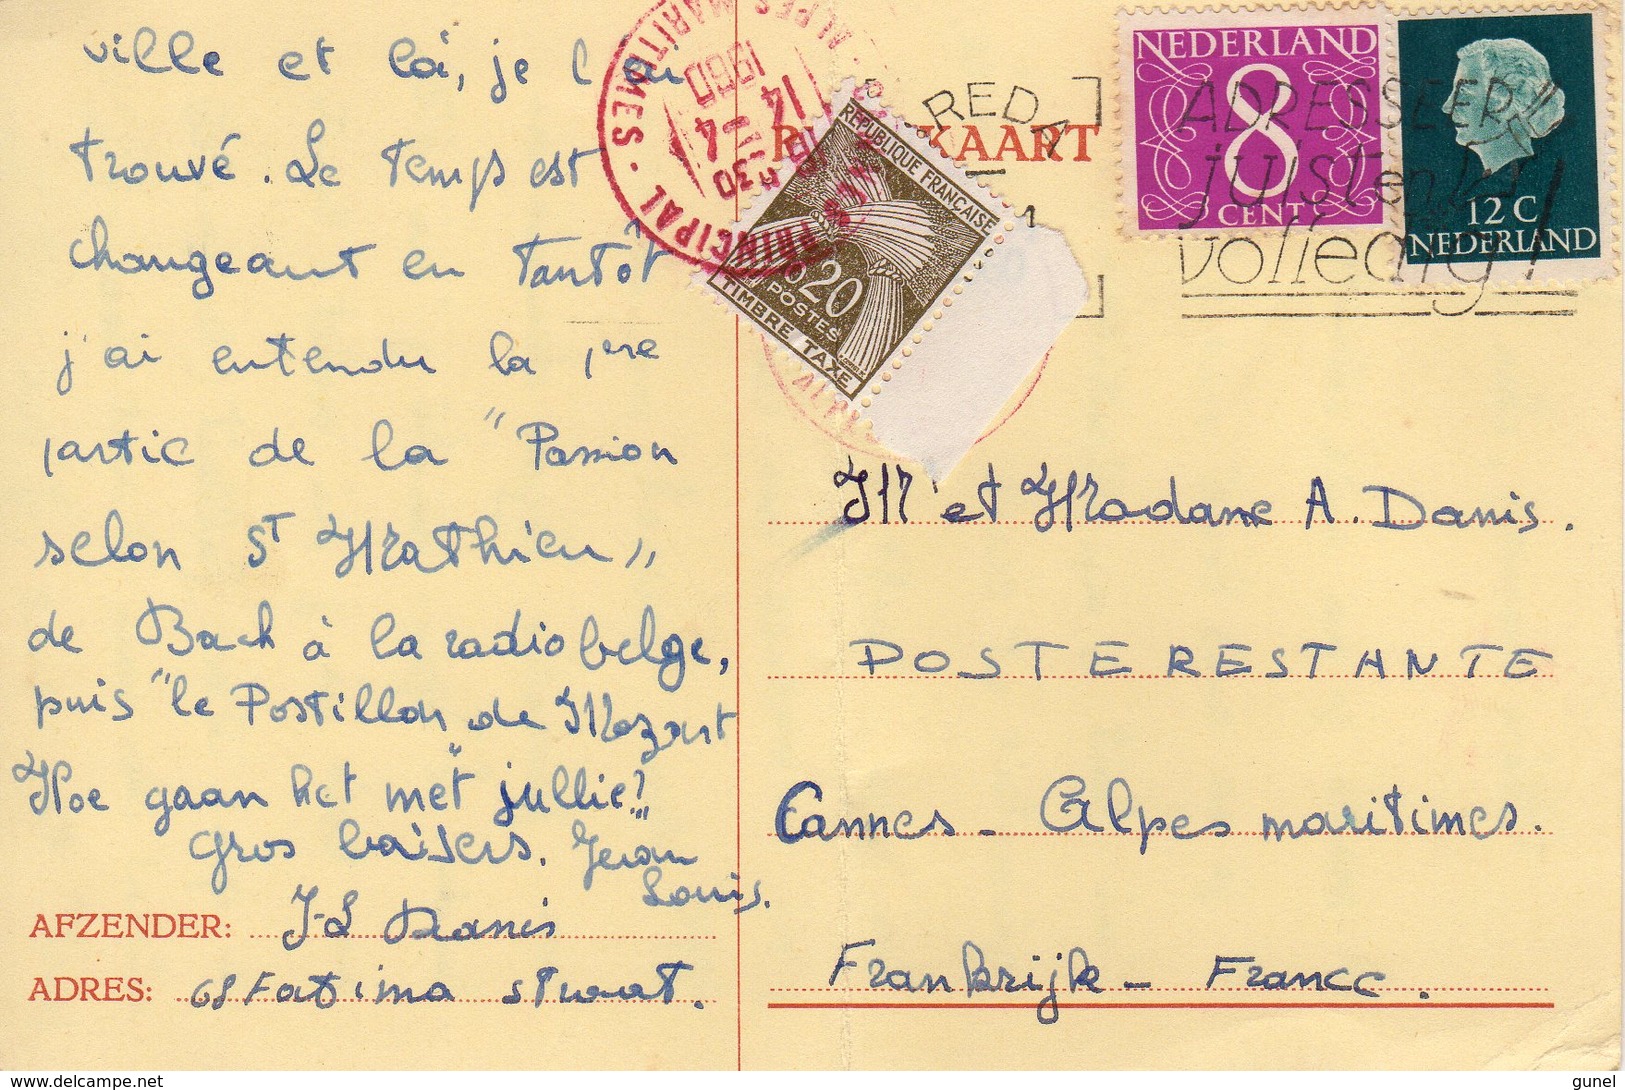 ville et là, je l'ai
trouvé. Le temps est
changeant en tantôt
j'ai entendu la 1re
partie de la "Passion
selon St Mathieu"
de Bach à la radio belge,
puis "le Postillon de Mozart"
Hoe gaan het met jullie?
Gros baisers. Jean
Louis.
AFZENDER: J-L Danis
ADRES: 68 Fatima straat.
ALPES MARITIMES · PRINCIPAL
14-4
1960
REPUBLIQUE FRANÇAISE
0,20
POSTES
TIMBRE TAXE
BREDA
KAART
1
NEDERLAND
8
CENT
12 C
NEDERLAND
ADRESSEER
juist en
volledig!
Mr et Madame A. Danis.
POSTE RESTANTE
Cannes - Alpes maritimes.
Frankrijk - France.
www.delcampe.net
gunel